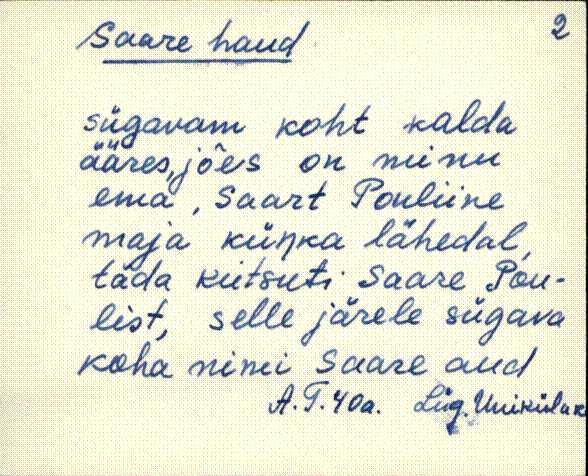 2
Saare haud
sügavam koht kalda
ääres, jões on minu
ema, Saart Pouliine
maja künka lähedal,
täda kutsuti Saare Pou-
list, selle järele sügava
koha nimi Saare aud
A.T. 40a. Lüg. Uniküla k